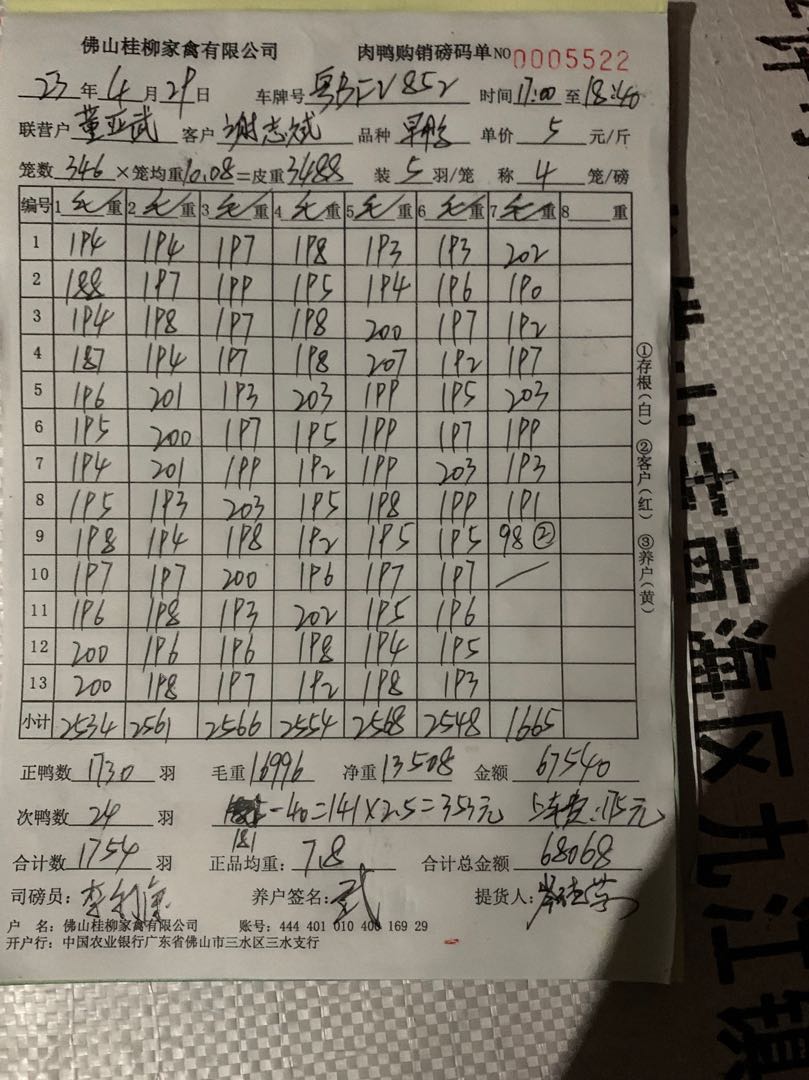 佛山桂柳家禽有限公司 肉鸭购销磅码单 NO 0005522
23 年 4 月 29 日 车牌号 时间 17:00 至 18:40
联营户 董亚武 客户 谢志斌 品种 单价 5 元/斤
笼数 346 ×笼均重 10.08 =皮重 3488 装 5 羽/笼 称 4 笼/磅
编号 1 毛 重 2 毛 重 3 毛 重 4 毛 重 5 毛 重 6 毛 重 7 毛 重 8 重
1 194 194 197 198 193 193 202
2 188 197 199 195 194 196 190
3 194 198 197 198 200 197 192
4 187 194 197 198 207 192 197
5 196 201 193 203 199 195 203
6 195 200 197 195 199 197 199
7 194 201 199 192 199 203 193
8 195 193 203 195 198 199 191
9 198 194 198 192 195 195 98 ②
10 197 197 200 196 197 197
11 196 198 193 202 195 196
12 200 196 196 198 194 195
13 200 198 197 192 198 193
小计 2534 2561 2566 2554 2568 2548 1665
①存根(白) ②客户(红) ③养户(黄)
正鸭数 1730 羽 毛重 16996 净重 13508 金额 67540
次鸭数 24 羽 -40=141×2.5=353元 175元
181
合计数 1754 羽 正品均重: 7.8 合计总金额 68068
司磅员: 养户签名: 武 提货人:
户 名: 佛山桂柳家禽有限公司 账号: 444 401 010 400 169 29
开户行: 中国农业银行广东省佛山市三水区三水支行
南海区九江镇